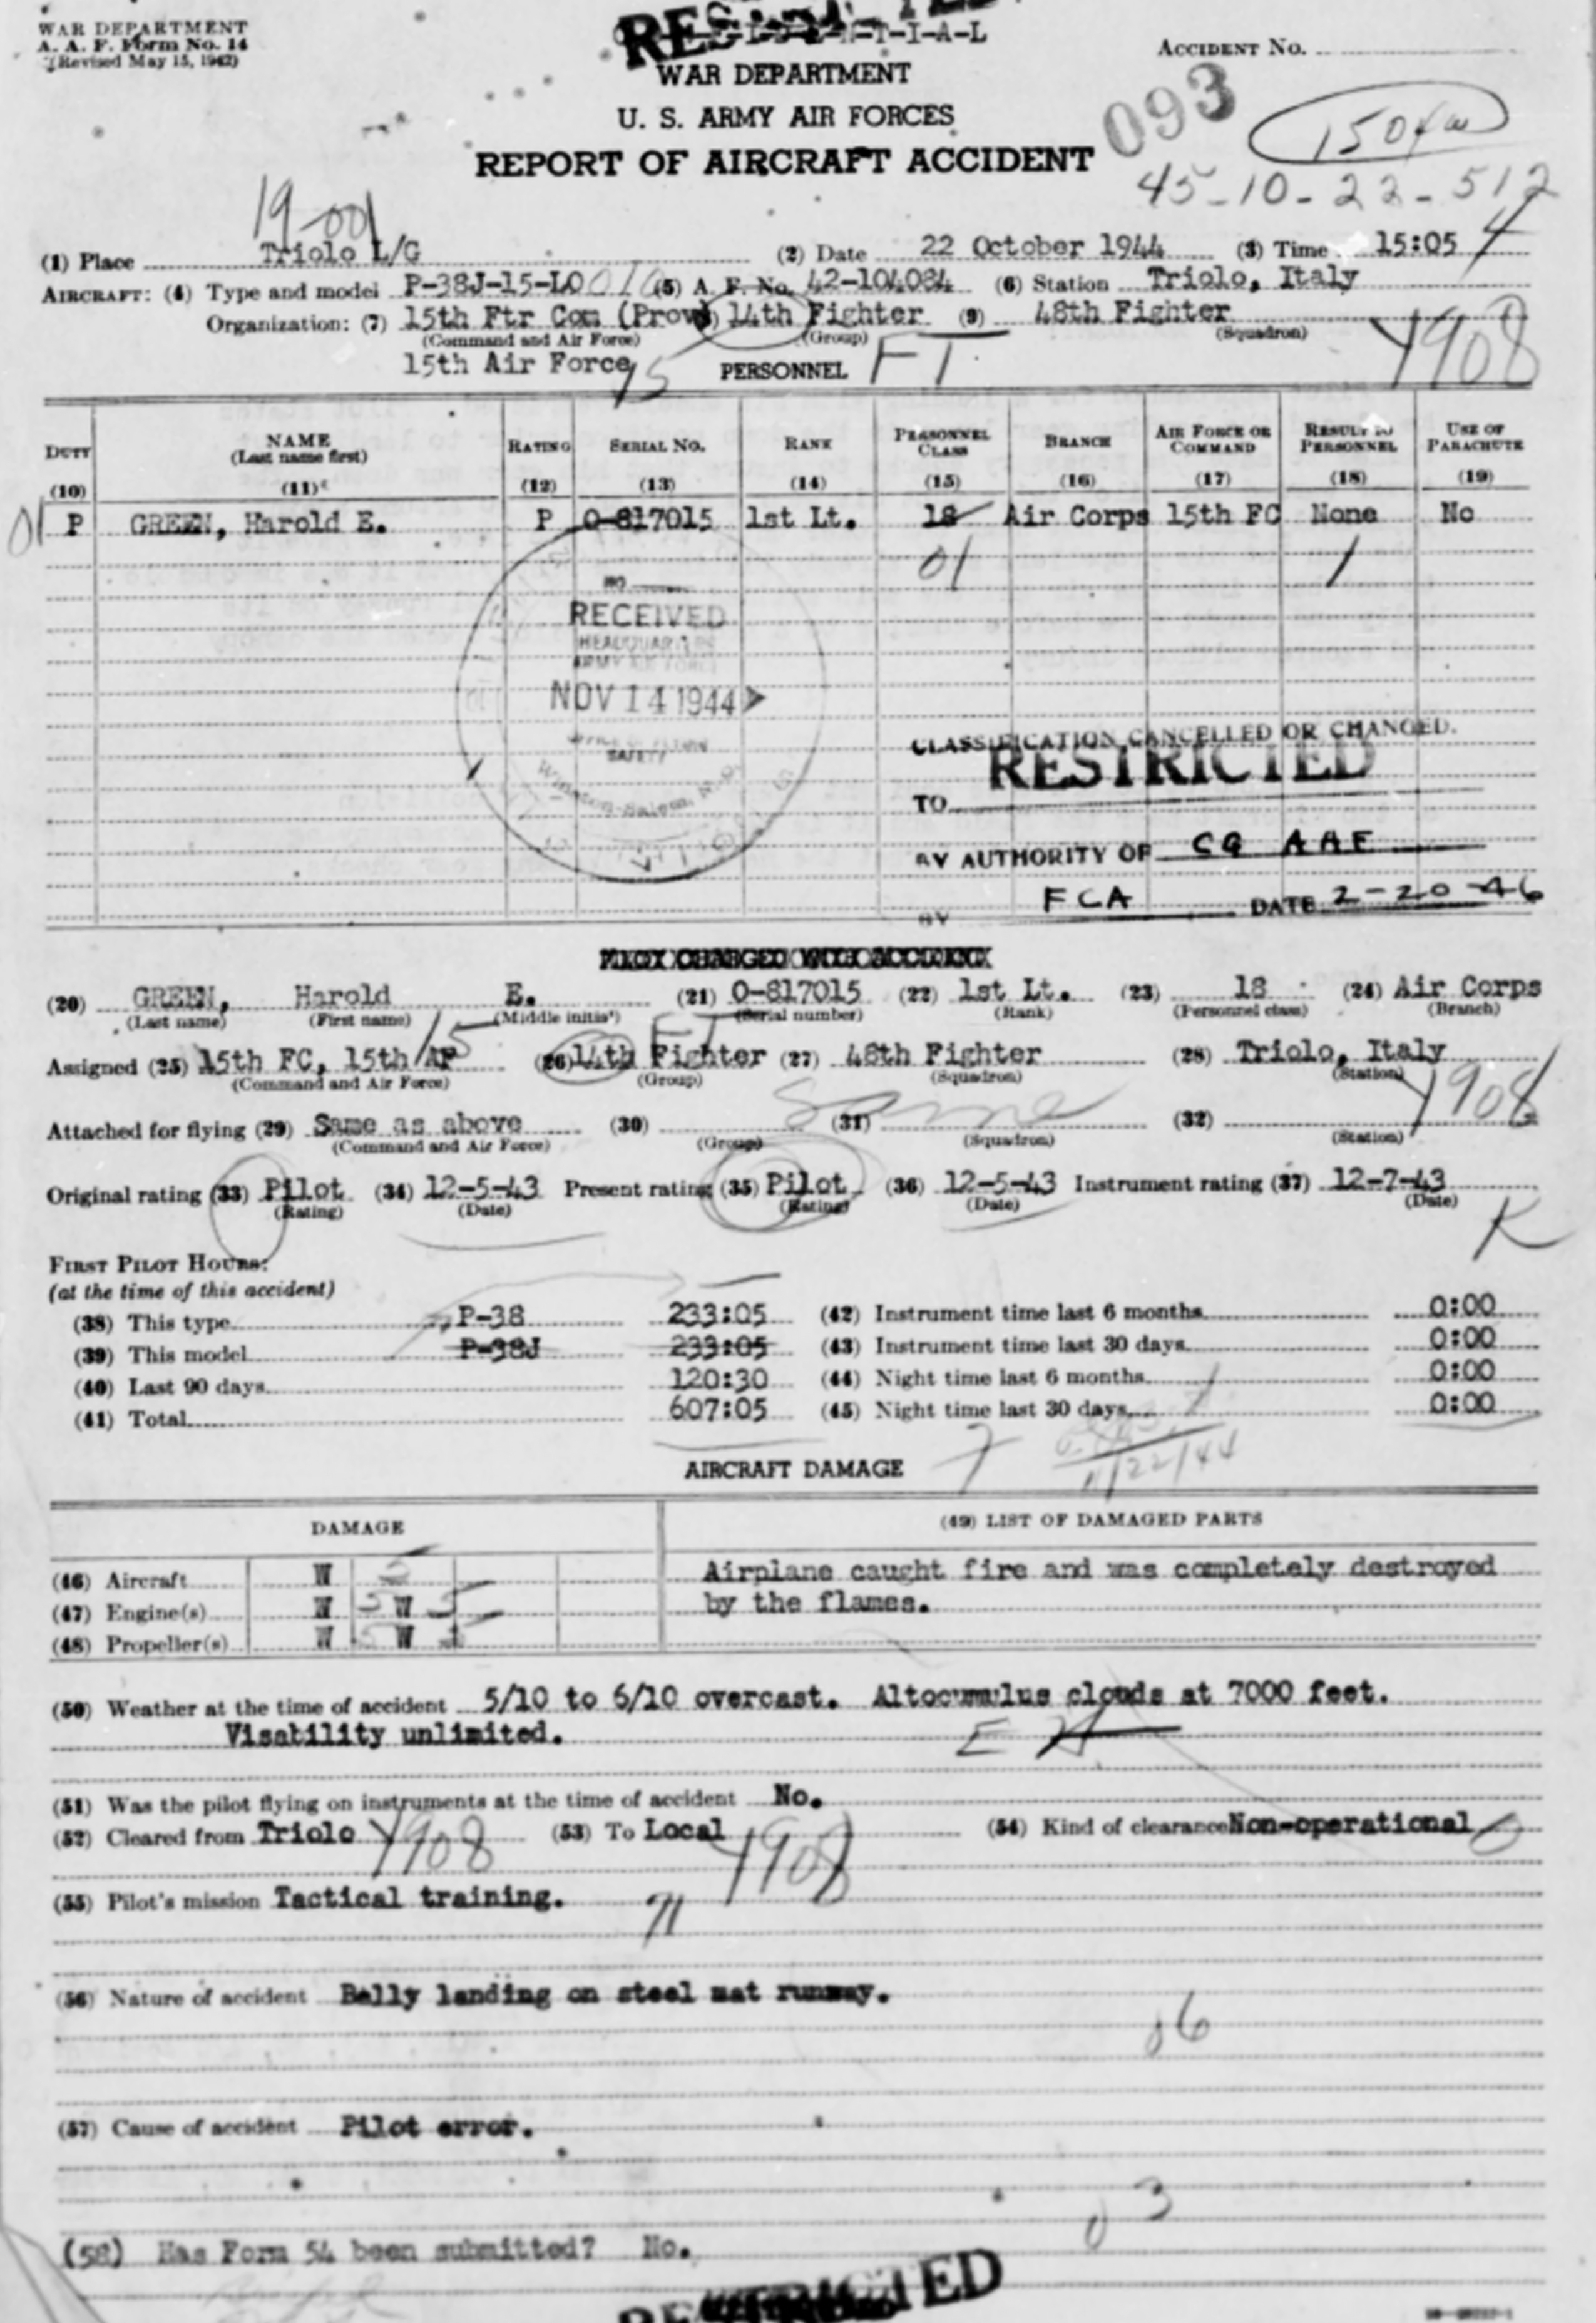 WAR DEPARTMENT
A. A. F. Form No. 14
(Revised May 15, 1942)
RESTRICTED
T-I-A-L
ACCIDENT No.
WAR DEPARTMENT
U. S. ARMY AIR FORCES
REPORT OF AIRCRAFT ACCIDENT
093
45-10-22-512
(1) Place Triolo L/G (2) Date 22 October 1944 (3) Time 15:05 4
AIRCRAFT: (4) Type and model P-38J-15-LO 010 (5) A. F. No. 42-104084 (6) Station Triolo, Italy
Organization: (7) 15th Ftr Com (Prov) 14th Fighter (9) 48th Fighter
(Command and Air Force) (Group) (Squadron)
15th Air Force 15 PERSONNEL FT Y908
DUTY NAME (Last name first) RATING SERIAL No. RANK PERSONNEL CLASS BRANCH AIR FORCE OR COMMAND RESULT TO PERSONNEL USE OF PARACHUTE
(10) (11) (12) (13) (14) (15) (16) (17) (18) (19)
01 P GREEN, Harold E. P O-817015 1st Lt. 18 Air Corps 15th FC None No
01 1
NO
RECEIVED
HEADQUARTERS
ARMY AIR FORCES
NOV 14 1944
OFFICE OF FLYING
SAFETY
Winston-Salem, N.C.
CLASSIFICATION CANCELLED OR CHANGED.
RESTRICTED
TO
BY AUTHORITY OF CG AAF
BY FCA DATE 2-20-46
PILOT CHARGED WITH ACCIDENT
(20) GREEN, Harold E. (21) O-817015 (22) 1st Lt. (23) 18 (24) Air Corps
(Last name) (First name) (Middle initial) (Serial number) (Rank) (Personnel class) (Branch)
Assigned (25) 15th FC, 15th AF 15 (26) 14th Fighter FT (27) 48th Fighter (28) Triolo, Italy
(Command and Air Force) (Group) (Squadron) (Station)
Y908
Attached for flying (29) Same as above (30) Same (31) (32)
(Command and Air Force) (Group) (Squadron) (Station)
Original rating (33) Pilot (34) 12-5-43 Present rating (35) Pilot (36) 12-5-43 Instrument rating (37) 12-7-43
(Rating) (Date) (Rating) (Date) (Date)
K
FIRST PILOT HOURS:
(at the time of this accident)
(38) This type P-38 233:05 (42) Instrument time last 6 months 0:00
(39) This model P-38J 233:05 (43) Instrument time last 30 days 0:00
(40) Last 90 days 120:30 (44) Night time last 6 months 0:00
(41) Total 607:05 (45) Night time last 30 days 0:00
AIRCRAFT DAMAGE 7
11/22/44
DAMAGE (49) LIST OF DAMAGED PARTS
(46) Aircraft W Airplane caught fire and was completely destroyed
(47) Engine(s) W W by the flames.
(48) Propeller(s) W W
(50) Weather at the time of accident 5/10 to 6/10 overcast. Altocumulus clouds at 7000 feet.
Visability unlimited.
(51) Was the pilot flying on instruments at the time of accident No.
(52) Cleared from Triolo Y908 (53) To Local Y908 (54) Kind of clearance Non-operational
(55) Pilot's mission Tactical training. 71
(56) Nature of accident Belly landing on steel mat runway.
06
(57) Cause of accident Pilot error.
03
(58) Has Form 54 been submitted? No.
RESTRICTED